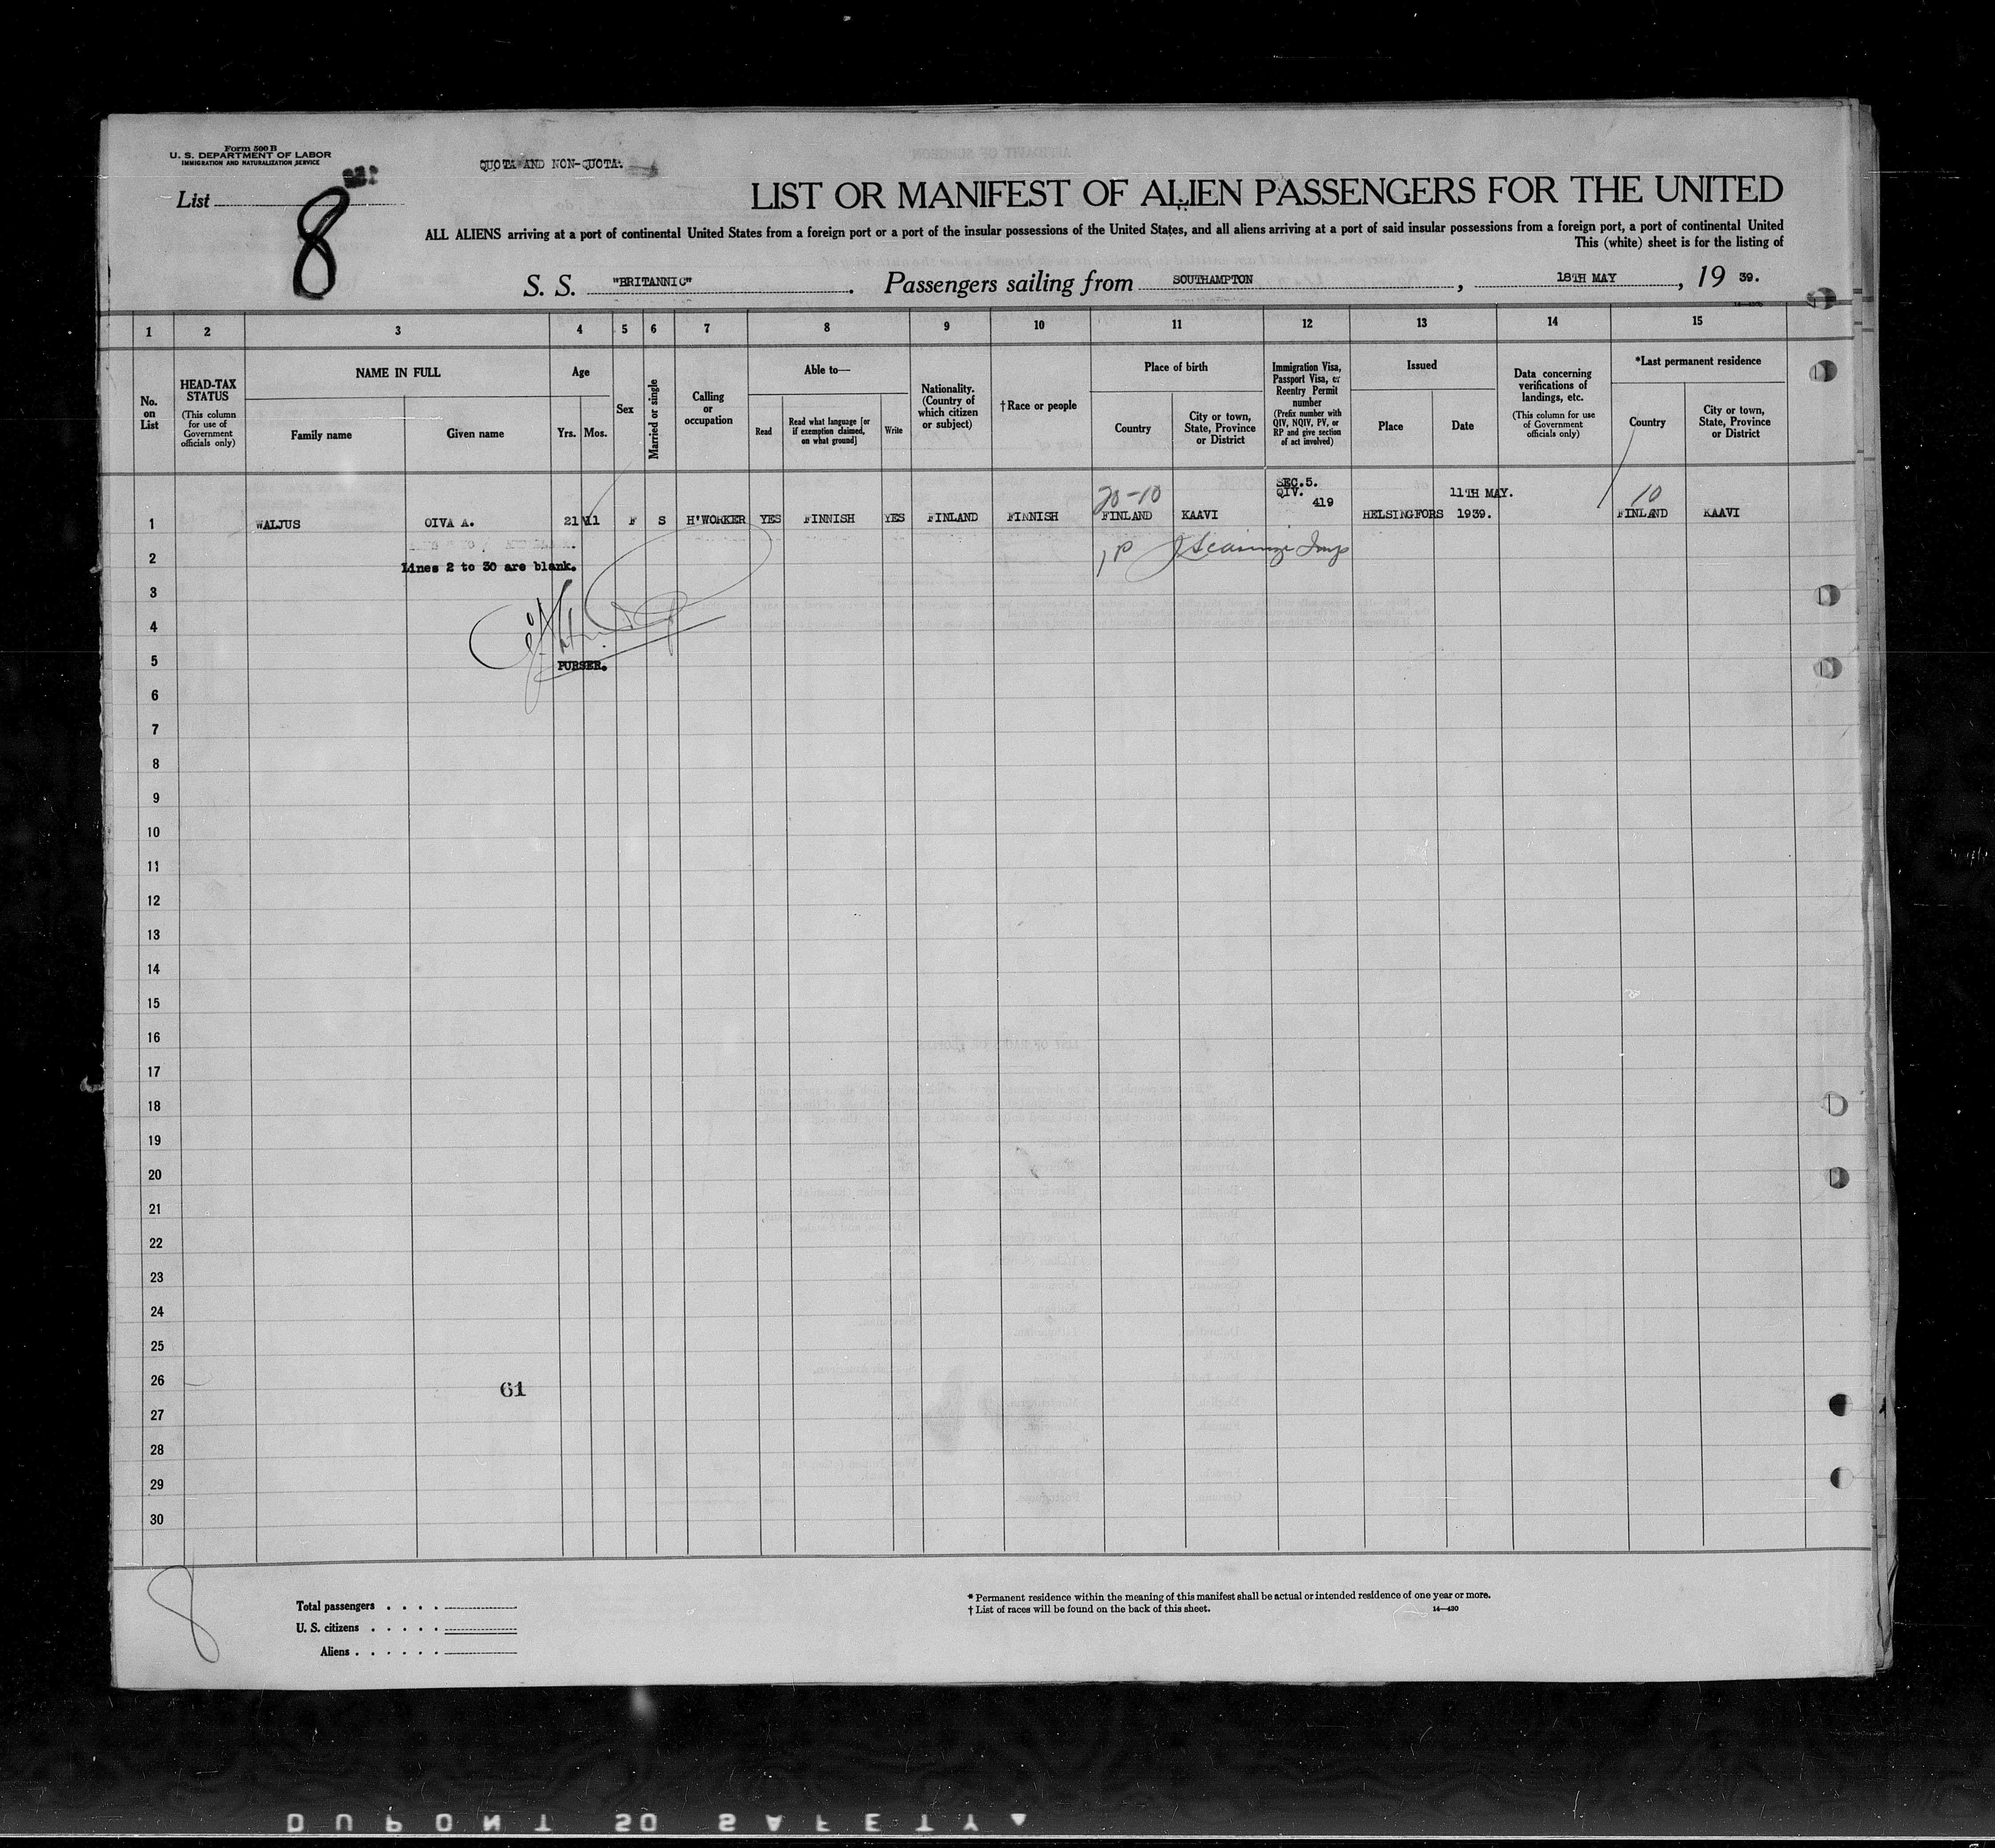 Form 500 B
U. S. DEPARTMENT OF LABOR
IMMIGRATION AND NATURALIZATION SERVICE
QUOTA AND NON-QUOTA.
List 8
LIST OR MANIFEST OF ALIEN PASSENGERS FOR THE UNITED
ALL ALIENS arriving at a port of continental United States from a foreign port or a port of the insular possessions of the United States, and all aliens arriving at a port of said insular possessions from a foreign port, a port of continental United
This (white) sheet is for the listing of
S. S. "BRITANNIC". Passengers sailing from SOUTHAMPTON, 18TH MAY, 19 39.
1 2 3 4 5 6 7 8 9 10 11 12 13 14 15
No. on List
HEAD-TAX STATUS
(This column for use of Government officials only)
NAME IN FULL
Family name Given name
Age
Yrs. Mos.
Sex
Married or single
Calling or occupation
Able to—
Read
Read what language [or if exemption claimed, on what ground]
Write
Nationality. (Country of which citizen or subject)
† Race or people
Place of birth
Country
City or town, State, Province or District
Immigration Visa, Passport Visa, or Reentry Permit number
(Prefix number with QIV, NQIV, PV, or RP and give section of act involved)
Issued
Place Date
Data concerning verifications of landings, etc.
(This column for use of Government officials only)
*Last permanent residence
Country
City or town, State, Province or District
20-10 SEC.5. QIV. 419 11TH MAY. 10
1 WALJUS OIVA A. 21 11 F S H'WORKER YES FINNISH YES FINLAND FINNISH FINLAND KAAVI HELSINGFORS 1939. FINLAND KAAVI
2
Lines 2 to 30 are blank.
3
4
5
PURSER.
6
7
8
9
10
11
12
13
14
15
16
17
18
19
20
21
22
23
24
25
26
61
27
28
29
30
8
Total passengers
U. S. citizens
Aliens
* Permanent residence within the meaning of this manifest shall be actual or intended residence of one year or more.
† List of races will be found on the back of this sheet.
14—430
DUPONT SO SAFETY